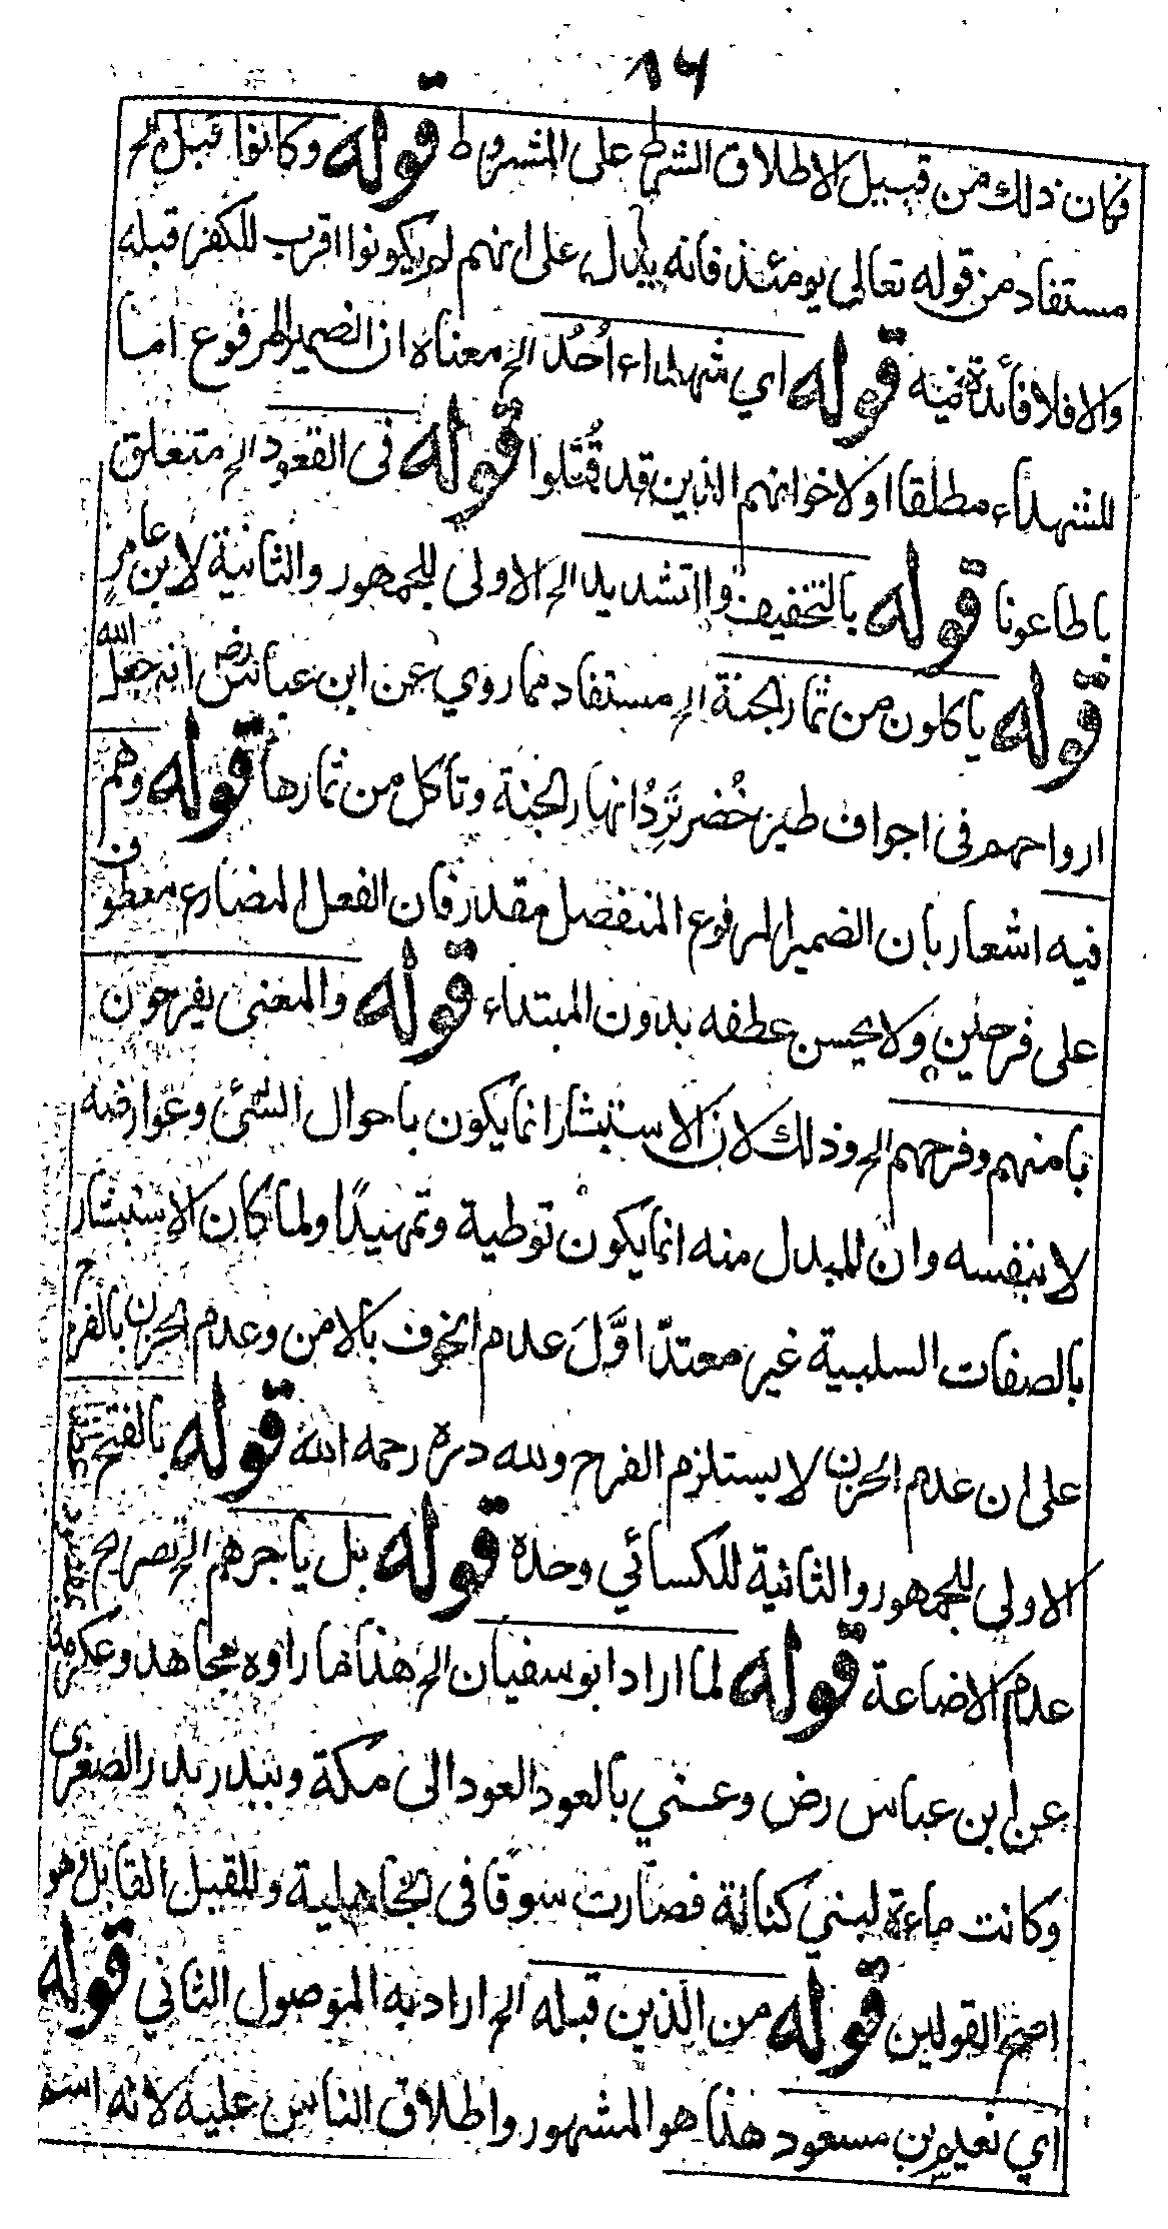 ١٦
فكان ذلك من قبيل الاطلاق الشرط على المشروط قوله وكانوا قبل الخ
مستفاد من قوله تعالى يومئذ فانه يدل على انهم لم يكونوا اقرب للكفر قبله
والا فلا فائدة فيه قوله اي شهداء اُحُد الخ معناه ان الضمير المرفوع اما
للشهداء مطلقا او لاخوانهم الذين قد قُتلوا قوله في القعود الخ متعلق
باطاعونا قوله بالتخفيف والتشديد الخ الاولى للجمهور والثانية لابن عامر
قوله ياكلون من ثمار الجنة الخ مستفاد مما روي عن ابن عباس رض انه جعل الله
ارواحهم في اجواف طير خُضر تَرِدُ انهار الجنة وتأكل من ثمارها قوله وهم
فيه اشعار بان الضمير المرفوع المنفصل مقدر فان الفعل المضارع معطوف
على فرحين ولا يحسن عطفه بدون المبتداء قوله والمعنى يفرحون
بامنهم وفرحهم الخ وذلك لان الاستبشار انما يكون باحوال الشئ وعوارضه
لا بنفسه وان للمبدل منه انما يكون توطية وتمهيدًا ولما كان الاستبشار
بالصفات السلبية غير معتدّ اوَّلَ عدم الخوف بالامن وعدم الحزن بالفرح
على ان عدم الحزن لا يستلزم الفرح ولله دره رحمه الله قوله بالفتح
الاولى للجمهور والثانية للكسائي وحده قوله بل ياجرهم الخ تصريح
عدم الاضاعة قوله لما اراد ابو سفيان الخ هذا ما رواه مجاهد وعكرمة
عن ابن عباس رض وعنى بالعود العود الى مكة وببدر بدر الصغرى
وكانت ماءة لبني كنانة فصارت سوقا في الجاهلية وللمقبل القابل وهو
اصح القولين قوله من الذين قبله الخ اراد به الموصول الثاني قوله
اي نعيم بن مسعود هذا هو المشهور واطلاق الناس عليه لانه اسم